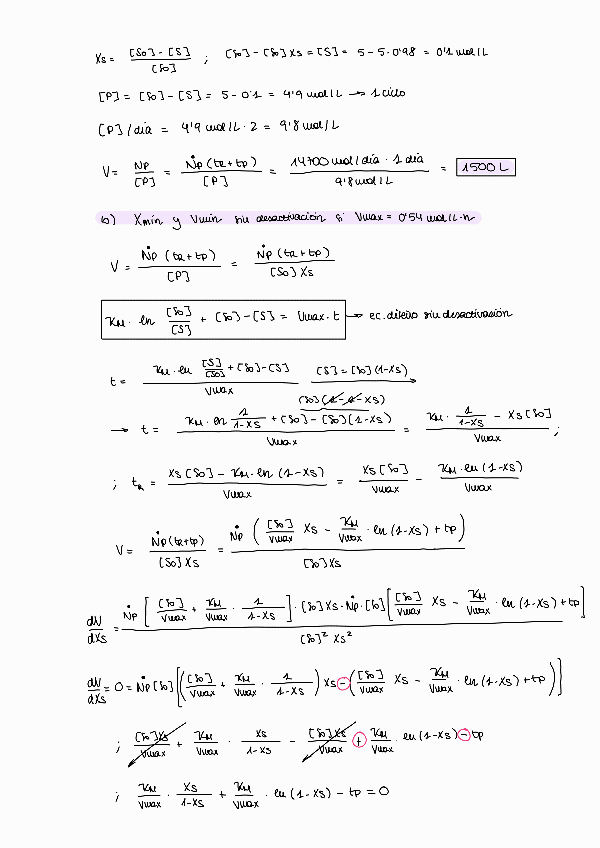 Xs = [So] - [S] / [So] ; [So] - [So] Xs = [S] = 5 - 5·0'98 = 0'1 mol/L
[P] = [So] - [S] = 5 - 0'1 = 4'9 mol/L → 1 ciclo
[P]/día = 4'9 mol/L · 2 = 9'8 mol/L
V = Np / [P] = Ṅp (tR + tp) / [P] = 14700 mol/día · 1 día / 9'8 mol/L = 1500 L
b) Xmín y Vmín sin desactivación si Vmax = 0'54 mol/L·h
V = Ṅp (tR + tp) / [P] = Ṅp (tR + tp) / [So] Xs
KM · ln [So]/[S] + [So] - [S] = Vmax · t → ec. diseño sin desactivación
t = KM · ln [S]/[So] + [So] - [S] / Vmax [S] = [So] (1 - Xs) →
[So] (1 - 1 - Xs)
→ t = KM · ln 1/1-Xs + [So] - [So] (1 - Xs) / Vmax = KM · 1/1-Xs - Xs [So] / Vmax ;
; tR = Xs [So] - KM · ln (1 - Xs) / Vmax = Xs [So] / Vmax - KM · ln (1 - Xs) / Vmax
V = Ṅp (tR + tp) / [So] Xs = Ṅp ( [So]/Vmax Xs - KM/Vmax · ln (1 - Xs) + tp ) / [So] Xs
dV/dXs = Ṅp [ [So]/Vmax + KM/Vmax · 1/1-Xs ] · [So] Xs · Ṅp · [So] [ [So]/Vmax Xs - KM/Vmax · ln (1 - Xs) + tp ] / [So]² Xs²
dV/dXs = 0 = Ṅp [So] [ ( [So]/Vmax + KM/Vmax · 1/1-Xs ) Xs - ( [So]/Vmax Xs - KM/Vmax · ln (1 - Xs) + tp ) ]
; [So] Xs/Vmax + KM/Vmax · Xs/1-Xs - [So] Xs/Vmax + KM/Vmax · ln (1 - Xs) - tp
; KM/Vmax · Xs/1-Xs + KM/Vmax · ln (1 - Xs) - tp = 0